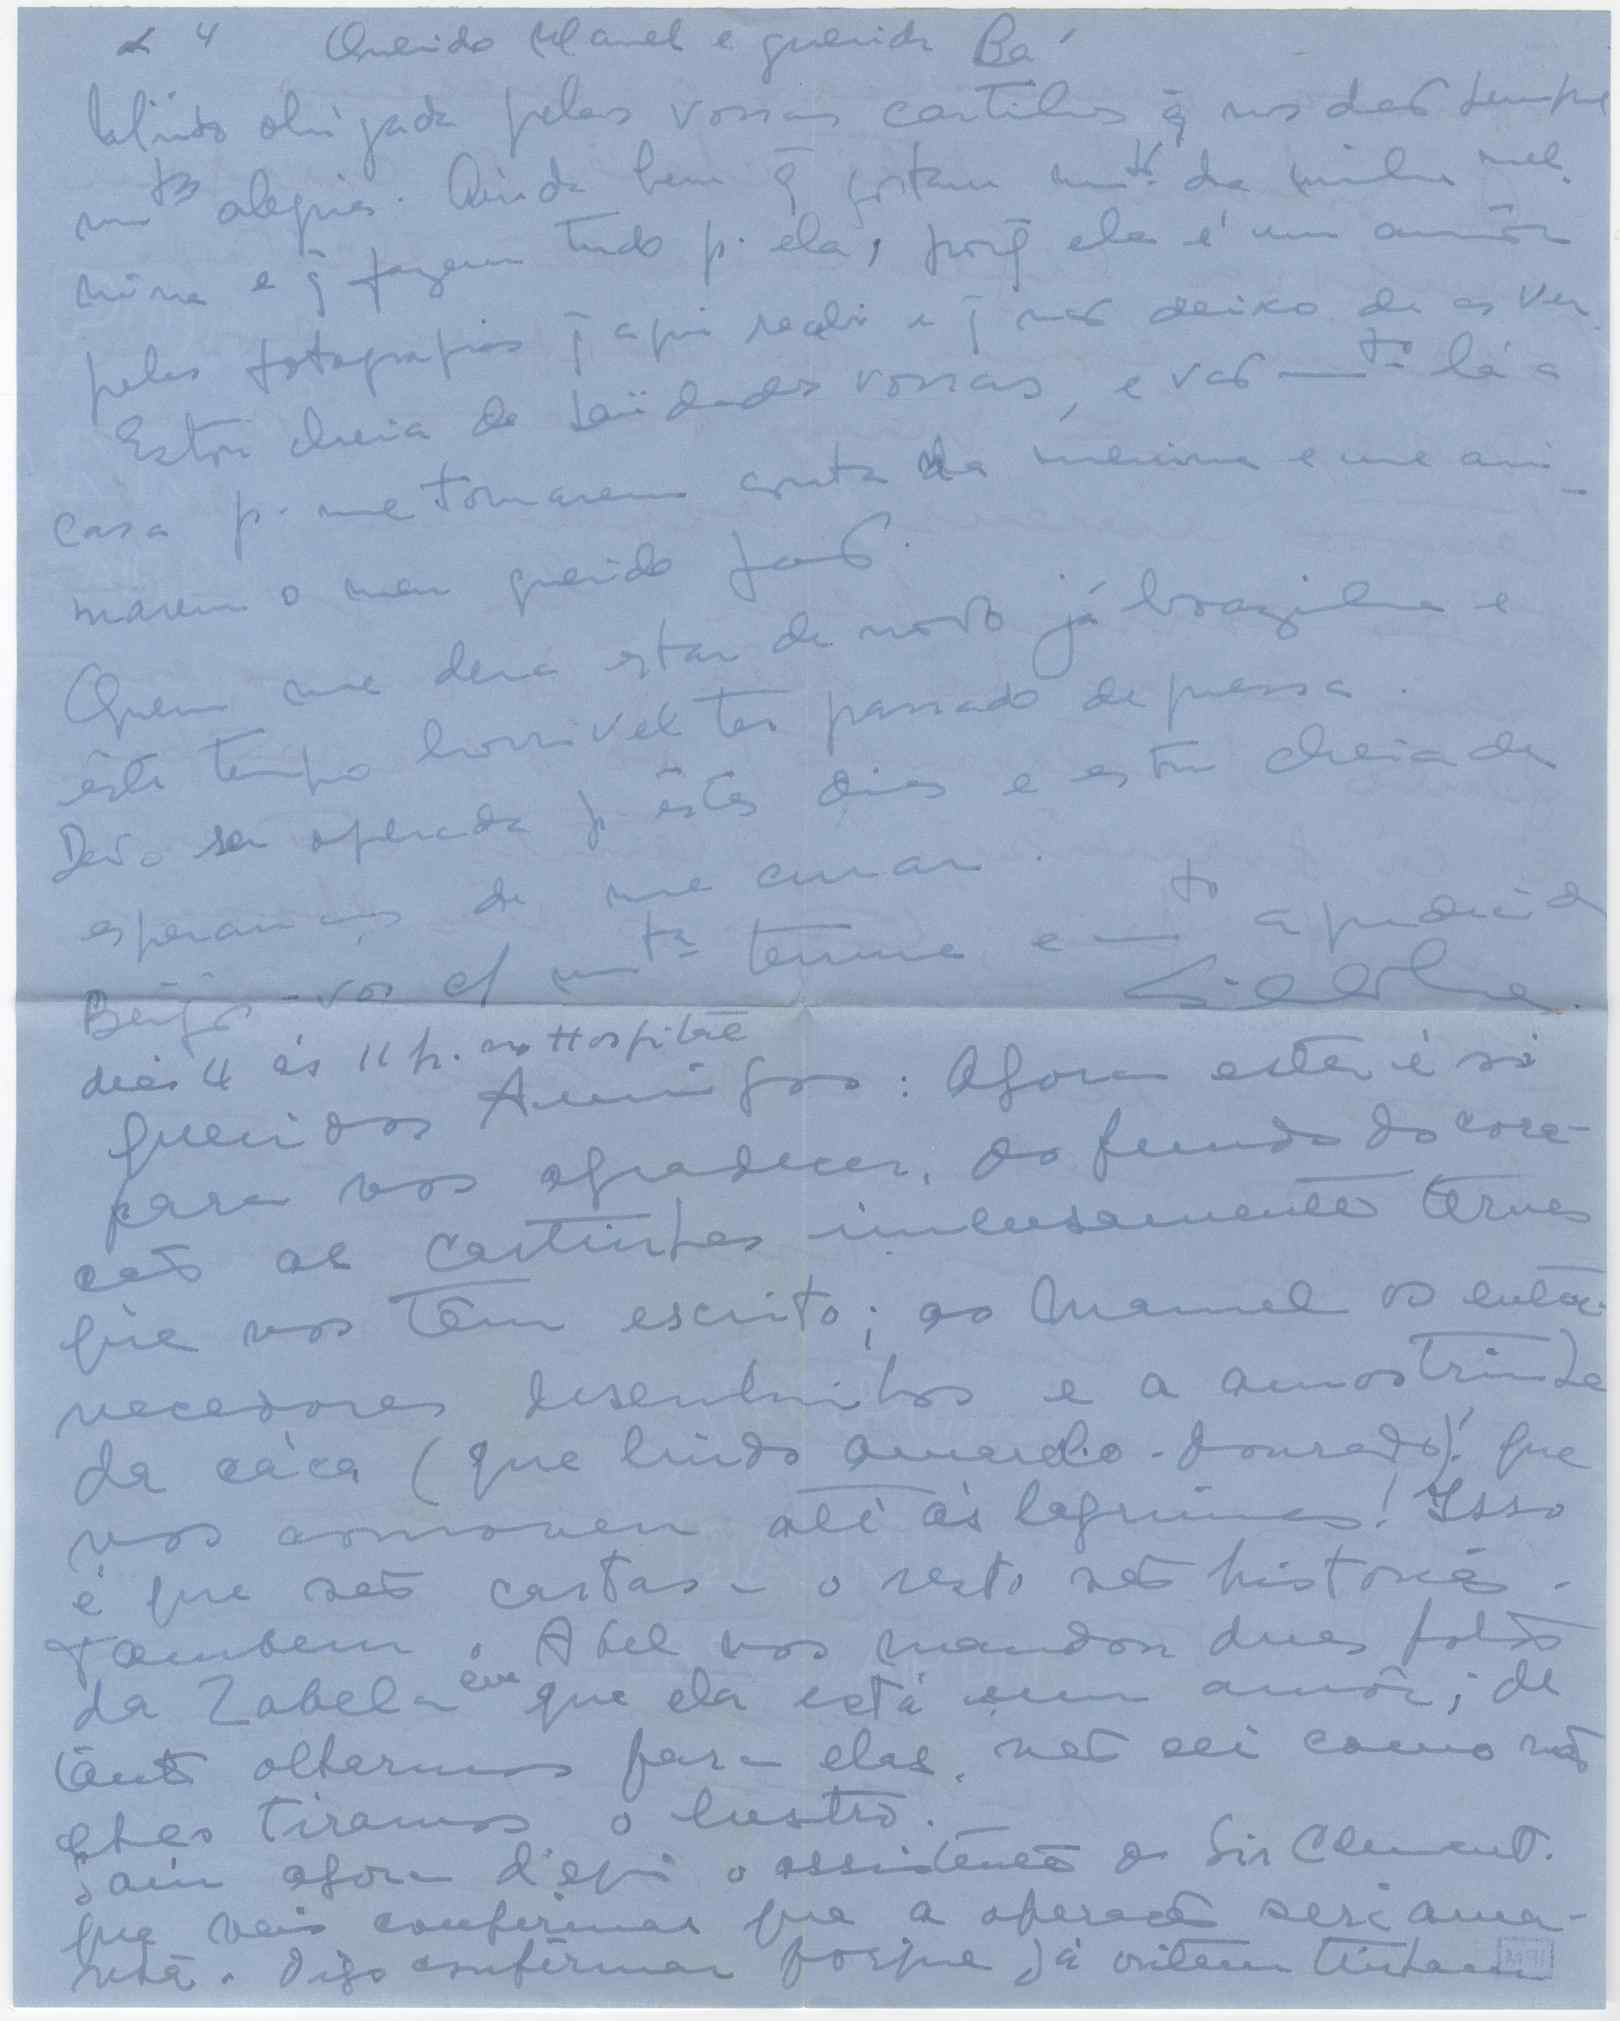 4 Querido Manel e querida Bá
Muito obrigada pelas vossas cartilhas q̃ nos dão sempre
mta alegria. Ainda bem q̃ gostam mto da minha me-
nina e q̃ fazem tudo p. ela, porq̃ ela é um amôr
pelas fotografias q̃ aqui recebi e q̃ não deixo de as ver.
Estou cheia de saüdades vossas, e vão mto lá a
casa p. me tomarem conta da menina e me ani-
marem o meu querido João.
Quem me dera estar de novo já brazilina e
êste tempo horrivel ter passado depressa.
Devo ser operada p. êstes dias e estou cheia de
esperanças de me curar.
Beijo-vos c/ mta ternura e mto agradecida
dia 4 ás 11 h. no Hospital
Queridos Amigos: Agora esta é só
para vos agradecer, do fundo do cora-
ção as cartinhas imensamente ternas
que nos têm escrito; ao Manuel os enter-
necedores desenhinhos e a amostrinha
da cáca (que lindo amarelo-dourado)! que
nos comovem até ás lagrimas! Isso
é que são cartas – o resto são historias.
Tambem o Abel nos mandou duas fotos
da Zabela em que ela está um amôr; de
tanto olharmos para elas, não sei como não
lhes tiramos o lustro.
Saiu agora d'aqui o assistente do Sir Clement.
que veio confirmar que a operação será ama-
nhã. Digo confirmar porque já ontem tinham